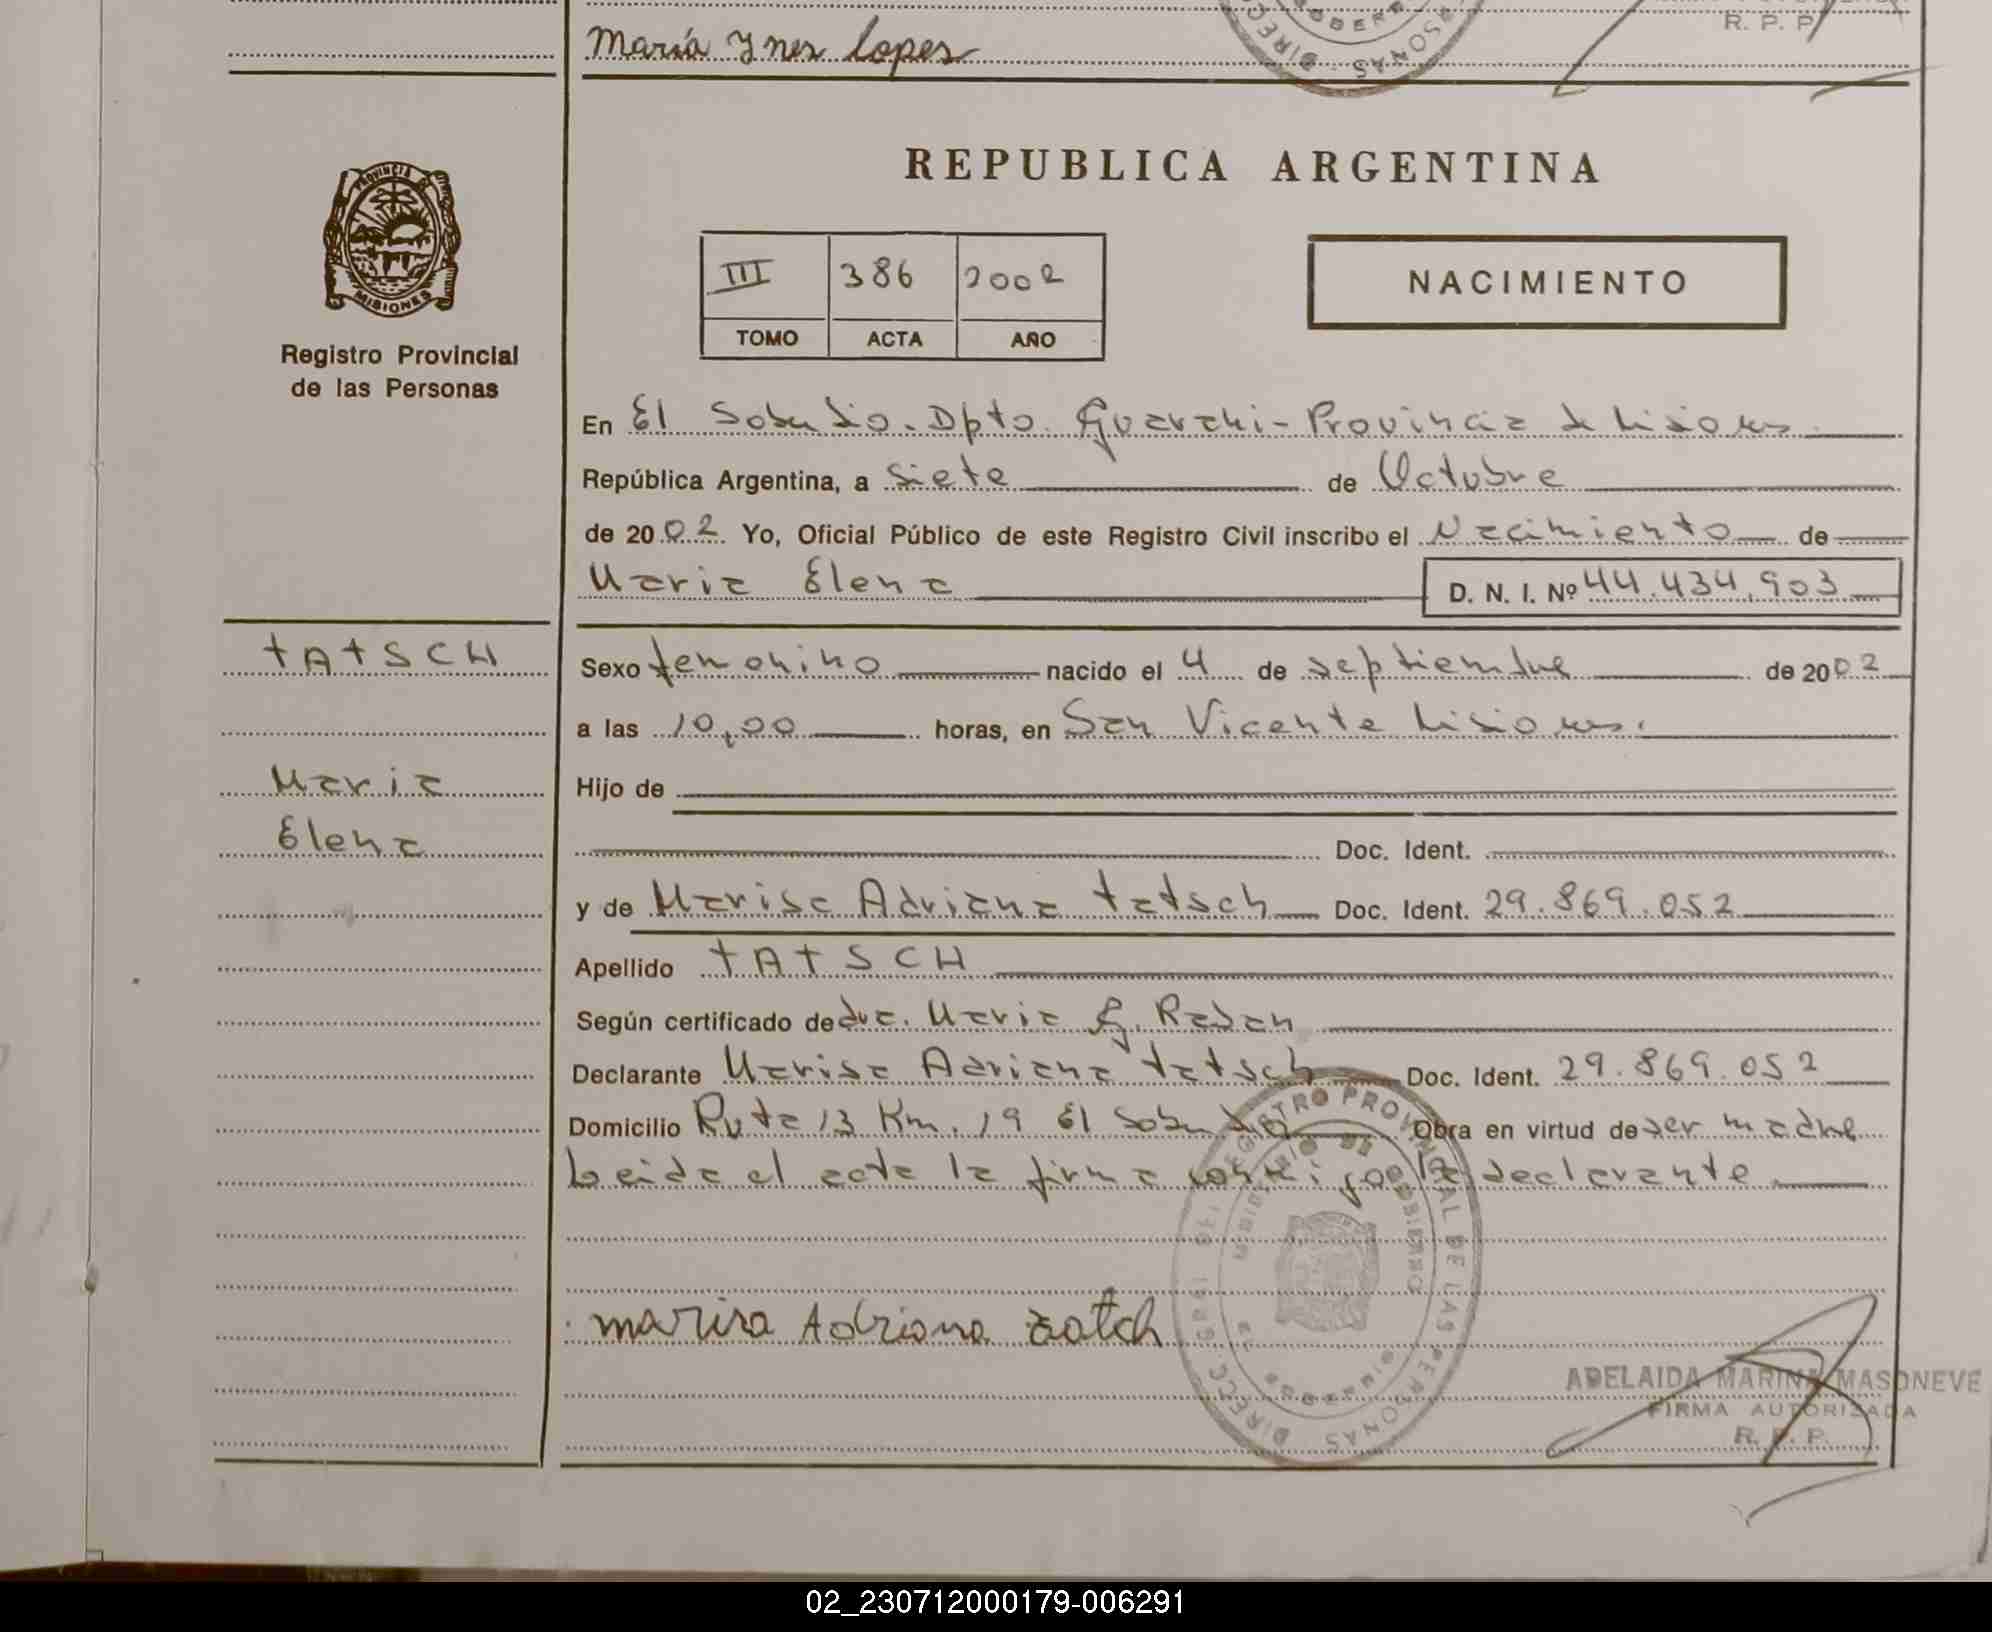 María Ynes Lopes
R. P. P.
REPUBLICA ARGENTINA
PROVINCIA DE MISIONES
Registro Provincial
de las Personas
III 386 2002
TOMO ACTA AÑO
NACIMIENTO
En El Soberbio. Dpto. Guarani - Provincia de Misiones
República Argentina, a siete de Octubre
de 2002 Yo, Oficial Público de este Registro Civil inscribo el Nacimiento de
Maria Elena D. N. I. Nº 44.434.903
TATSCH
Sexo femenino nacido el 4 de septiembre de 2002
a las 10,00 horas, en San Vicente Misiones.
Maria
Hijo de
Elena
Doc. Ident.
y de Marisa Adriana Tatsch Doc. Ident. 29.869.052
Apellido TATSCH
Según certificado de dra. Maria G. Radan
Declarante Marisa Adriana Tatsch Doc. Ident. 29.869.052
Domicilio Ruta 13 Km. 19 El Soberbio Obra en virtud de ser madre
Leida el acta la firma conmigo la declarante
marisa Adriana zatch
ADELAIDA MARINA MASONEVE
FIRMA AUTORIZADA
R. P. P.
02_230712000179-006291